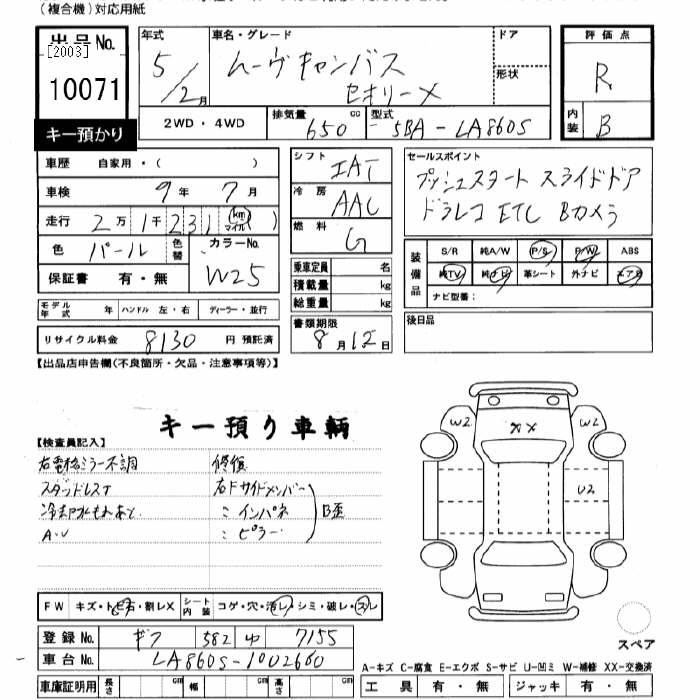 (複合機)対応用紙
出品No.
[2003]
10071
キー預かり
年式
5/2月
車名・グレード
ムーヴキャンバス
セオリーメ
ドア
形状
2WD・4WD
排気量
650 cc
型式
5BA-LA860S
評価点
R
内装
B
車歴 自家用・( )
車検 9年 7月
走行 2万1千231 (km マイル)
色 パール 色替
カラーNo.
W25
保証書 有・無
モデル年式 年 ハンドル 左・右 ディーラー・並行
リサイクル料金 8130 円 預託済
シフト IAT
冷房 AAC
燃料 G
乗車定員 名
積載量 kg
総重量 kg
書類期限
8月12日
セールスポイント
プッシュスタート スライドドア
ドラレコ ETC Bカメラ
装備品
S/R 純A/W P/S P/W ABS
純TV 純ナビ 革シート 外ナビ エアB
ナビ型番:
後日品
【出品店申告欄(不良箇所・欠品・注意事項等)】
キー預り車輌
【検査員記入】
右電格ミラー不調
スタッドレスT
冷却水もれあと
A・U
修復
右Fサイドメンバー
〃 インパネ
〃 ピラー
B歪
W2
XX
W2
U2
FW キズ・トビ石・割レX
シート内装 コゲ・穴・汚レ・シミ・破レ・スレ
登録No. ギフ 582 ゆ 7155
車台No. LA860S-1002660
車庫証明用 長さ cm 幅 cm 高さ cm
スペア
A-キズ C-腐食 E-エクボ S-サビ U-凹ミ W-補修 XX-交換済
工具 有・無 ジャッキ 有・無